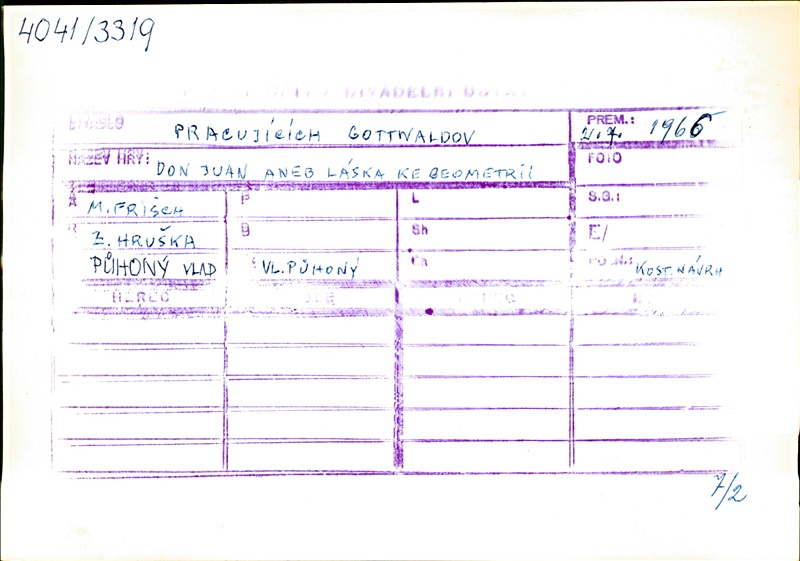 4041/3319
DIVADELNÍ ÚSTAV
DIVADLO PRACUJÍCÍCH GOTTWALDOV
PREM.: 2.7. 1966
NÁZEV HRY: DON JUAN ANEB LÁSKA KE GEOMETRII
FOTO
A M. FRISCH P L S.G.:
R Z. HRUŠKA Sh E/
PŮHONÝ VLAD VL. PŮHONÝ Ch KOST. NÁVRH
HEREC
7/2